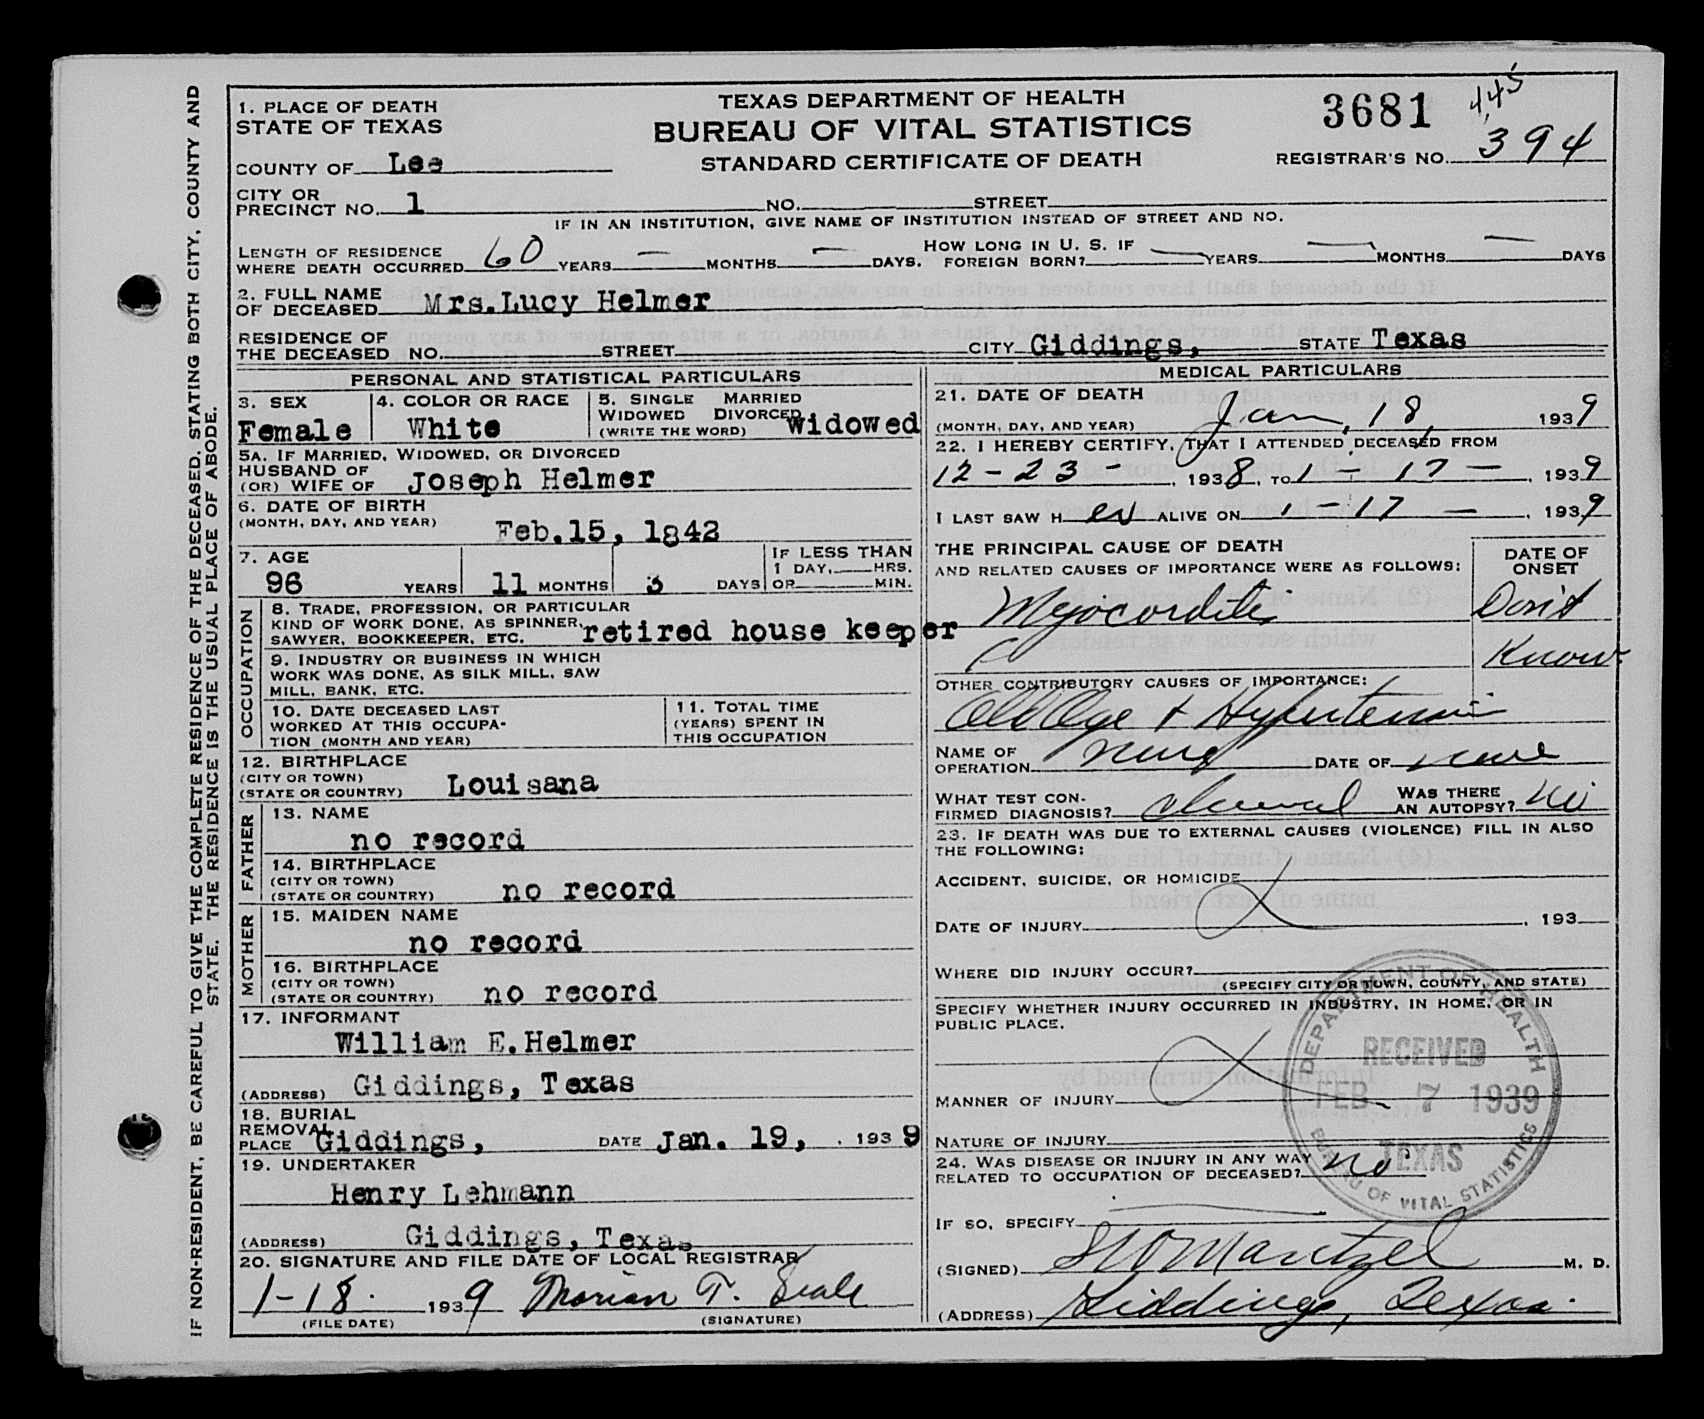 IF NON-RESIDENT, BE CAREFUL TO GIVE THE COMPLETE RESIDENCE OF THE DECEASED, STATING BOTH CITY, COUNTY AND
STATE. THE RESIDENCE IS THE USUAL PLACE OF ABODE.
1. PLACE OF DEATH
STATE OF TEXAS
COUNTY OF Lee
TEXAS DEPARTMENT OF HEALTH
BUREAU OF VITAL STATISTICS
STANDARD CERTIFICATE OF DEATH
3681 445
REGISTRAR'S NO. 394
CITY OR
PRECINCT NO. 1 NO. STREET
IF IN AN INSTITUTION, GIVE NAME OF INSTITUTION INSTEAD OF STREET AND NO.
LENGTH OF RESIDENCE
WHERE DEATH OCCURRED 60 YEARS — MONTHS — DAYS. HOW LONG IN U. S. IF
FOREIGN BORN? — YEARS — MONTHS — DAYS
2. FULL NAME
OF DECEASED Mrs.Lucy Helmer
RESIDENCE OF
THE DECEASED NO. STREET CITY Giddings, STATE Texas
PERSONAL AND STATISTICAL PARTICULARS
3. SEX
Female
4. COLOR OR RACE
White
5. SINGLE MARRIED
WIDOWED DIVORCED
(WRITE THE WORD) widowed
5A. IF MARRIED, WIDOWED, OR DIVORCED
HUSBAND OF
(OR) WIFE OF Joseph Helmer
6. DATE OF BIRTH
(MONTH, DAY, AND YEAR) Feb.15, 1842
7. AGE
96 YEARS 11 MONTHS 3 DAYS
IF LESS THAN
1 DAY, HRS.
OR MIN.
OCCUPATION
8. TRADE, PROFESSION, OR PARTICULAR
KIND OF WORK DONE, AS SPINNER,
SAWYER, BOOKKEEPER, ETC. retired house keeper
9. INDUSTRY OR BUSINESS IN WHICH
WORK WAS DONE, AS SILK MILL, SAW
MILL, BANK, ETC.
10. DATE DECEASED LAST
WORKED AT THIS OCCUPA-
TION (MONTH AND YEAR)
11. TOTAL TIME
(YEARS) SPENT IN
THIS OCCUPATION
12. BIRTHPLACE
(CITY OR TOWN)
(STATE OR COUNTRY) Louisana
FATHER
13. NAME
no record
14. BIRTHPLACE
(CITY OR TOWN)
(STATE OR COUNTRY) no record
MOTHER
15. MAIDEN NAME
no record
16. BIRTHPLACE
(CITY OR TOWN)
(STATE OR COUNTRY) no record
17. INFORMANT
William E.Helmer
(ADDRESS) Giddings, Texas
18. BURIAL
REMOVAL
PLACE Giddings, DATE Jan. 19, , 1939
19. UNDERTAKER
Henry Lehmann
(ADDRESS) Giddings, Texas
20. SIGNATURE AND FILE DATE OF LOCAL REGISTRAR
1-18. 1939 Marian T. Seale
(FILE DATE) (SIGNATURE)
MEDICAL PARTICULARS
21. DATE OF DEATH
(MONTH, DAY, AND YEAR) Jan, 18, 1939
22. I HEREBY CERTIFY, THAT I ATTENDED DECEASED FROM
12-23- , 1938, TO 1-17- , 1939
I LAST SAW H er ALIVE ON 1-17- , 1939
THE PRINCIPAL CAUSE OF DEATH
AND RELATED CAUSES OF IMPORTANCE WERE AS FOLLOWS:
DATE OF
ONSET
Myocorditis Don't
Know
OTHER CONTRIBUTORY CAUSES OF IMPORTANCE:
Old Age + Hypertension
NAME OF
OPERATION none DATE OF none
WHAT TEST CON-
FIRMED DIAGNOSIS? clinical WAS THERE
AN AUTOPSY? No
23. IF DEATH WAS DUE TO EXTERNAL CAUSES (VIOLENCE) FILL IN ALSO
THE FOLLOWING:
ACCIDENT, SUICIDE, OR HOMICIDE
DATE OF INJURY , 193
WHERE DID INJURY OCCUR?
(SPECIFY CITY OR TOWN, COUNTY, AND STATE)
SPECIFY WHETHER INJURY OCCURRED IN INDUSTRY, IN HOME, OR IN
PUBLIC PLACE.
MANNER OF INJURY
NATURE OF INJURY
24. WAS DISEASE OR INJURY IN ANY WAY
RELATED TO OCCUPATION OF DECEASED? no
IF SO, SPECIFY
(SIGNED) Mantzel M. D.
(ADDRESS) Giddings, Texas.
DEPARTMENT OF HEALTH
RECEIVED
FEB 7 1939
TEXAS
BUREAU OF VITAL STATISTICS